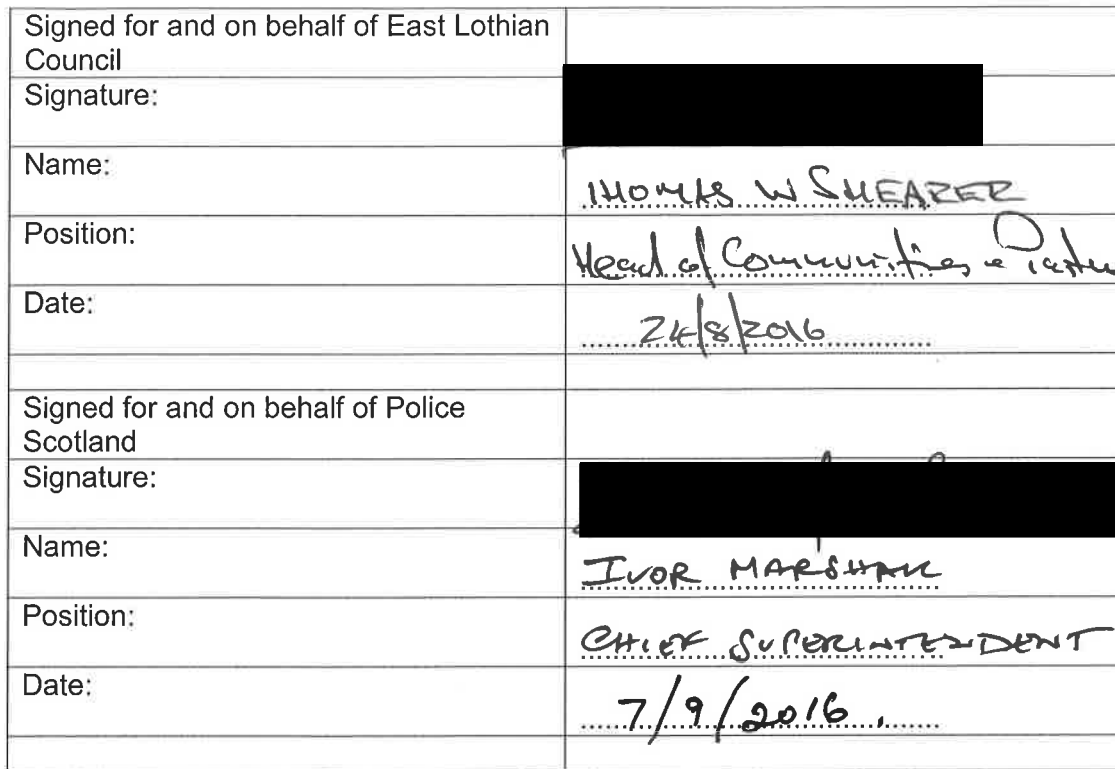 Signed for and on behalf of East Lothian
Council
Signature:
Name:
THOMAS W SHEARER
Position:
Head of Communities &
Date:
24/8/2016
Signed for and on behalf of Police
Scotland
Signature:
Name:
IVOR MARSHALL
Position:
CHIEF SUPERINTENDENT
Date:
7/9/2016.